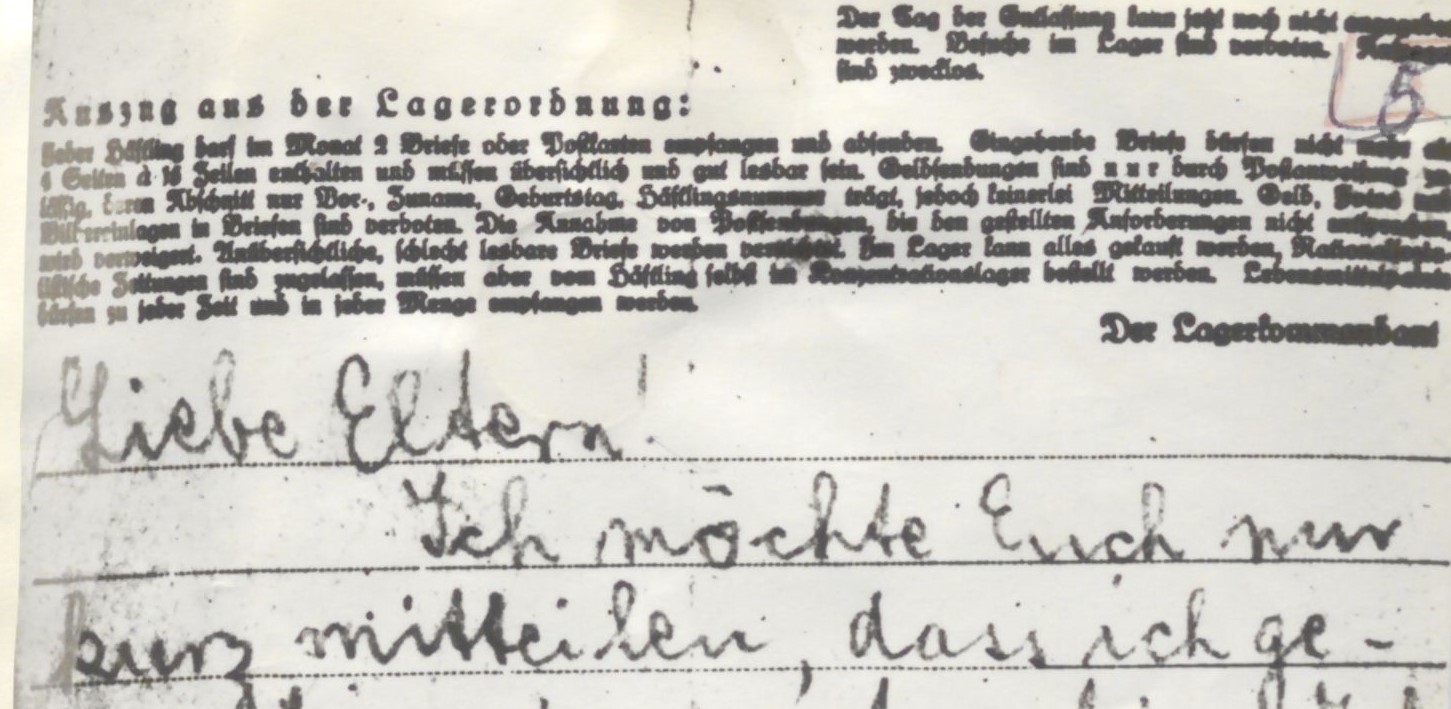 Der Tag der Entlassung kann jetzt noch nicht angegeben
werden. Besuche im Lager sind verboten. Anfragen
sind zwecklos.
5
Auszug aus der Lagerordnung:
Jeder Häftling darf im Monat 2 Briefe oder Postkarten empfangen und absenden. Eingehende Briefe dürfen nicht mehr als
4 Seiten à 16 Zeilen enthalten und müssen übersichtlich und gut lesbar sein. Geldsendungen sind nur durch Postanweisung
deren Abschnitt nur Vor-, Zuname, Geburtstag, Häftlingsnummer trägt, jedoch keinerlei Mitteilungen. Geld, Fotos und
Bildereinlagen in Briefen sind verboten. Die Annahme von Postsendungen, die den gestellten Anforderungen nicht entsprechen,
wird verweigert. Unübersichtliche, schlecht lesbare Briefe werden vernichtet. Im Lager kann alles gekauft werden, Nationalsozia-
listische Zeitungen sind zugelassen, müssen aber vom Häftling selbst im Konzentrationslager bestellt werden. Lebensmittelpakete
dürfen zu jeder Zeit und in jeder Menge empfangen werden.
Der Lagerkommandant
Liebe Eltern!
Ich möchte Euch nur
kurz mitteilen, dass ich ge-